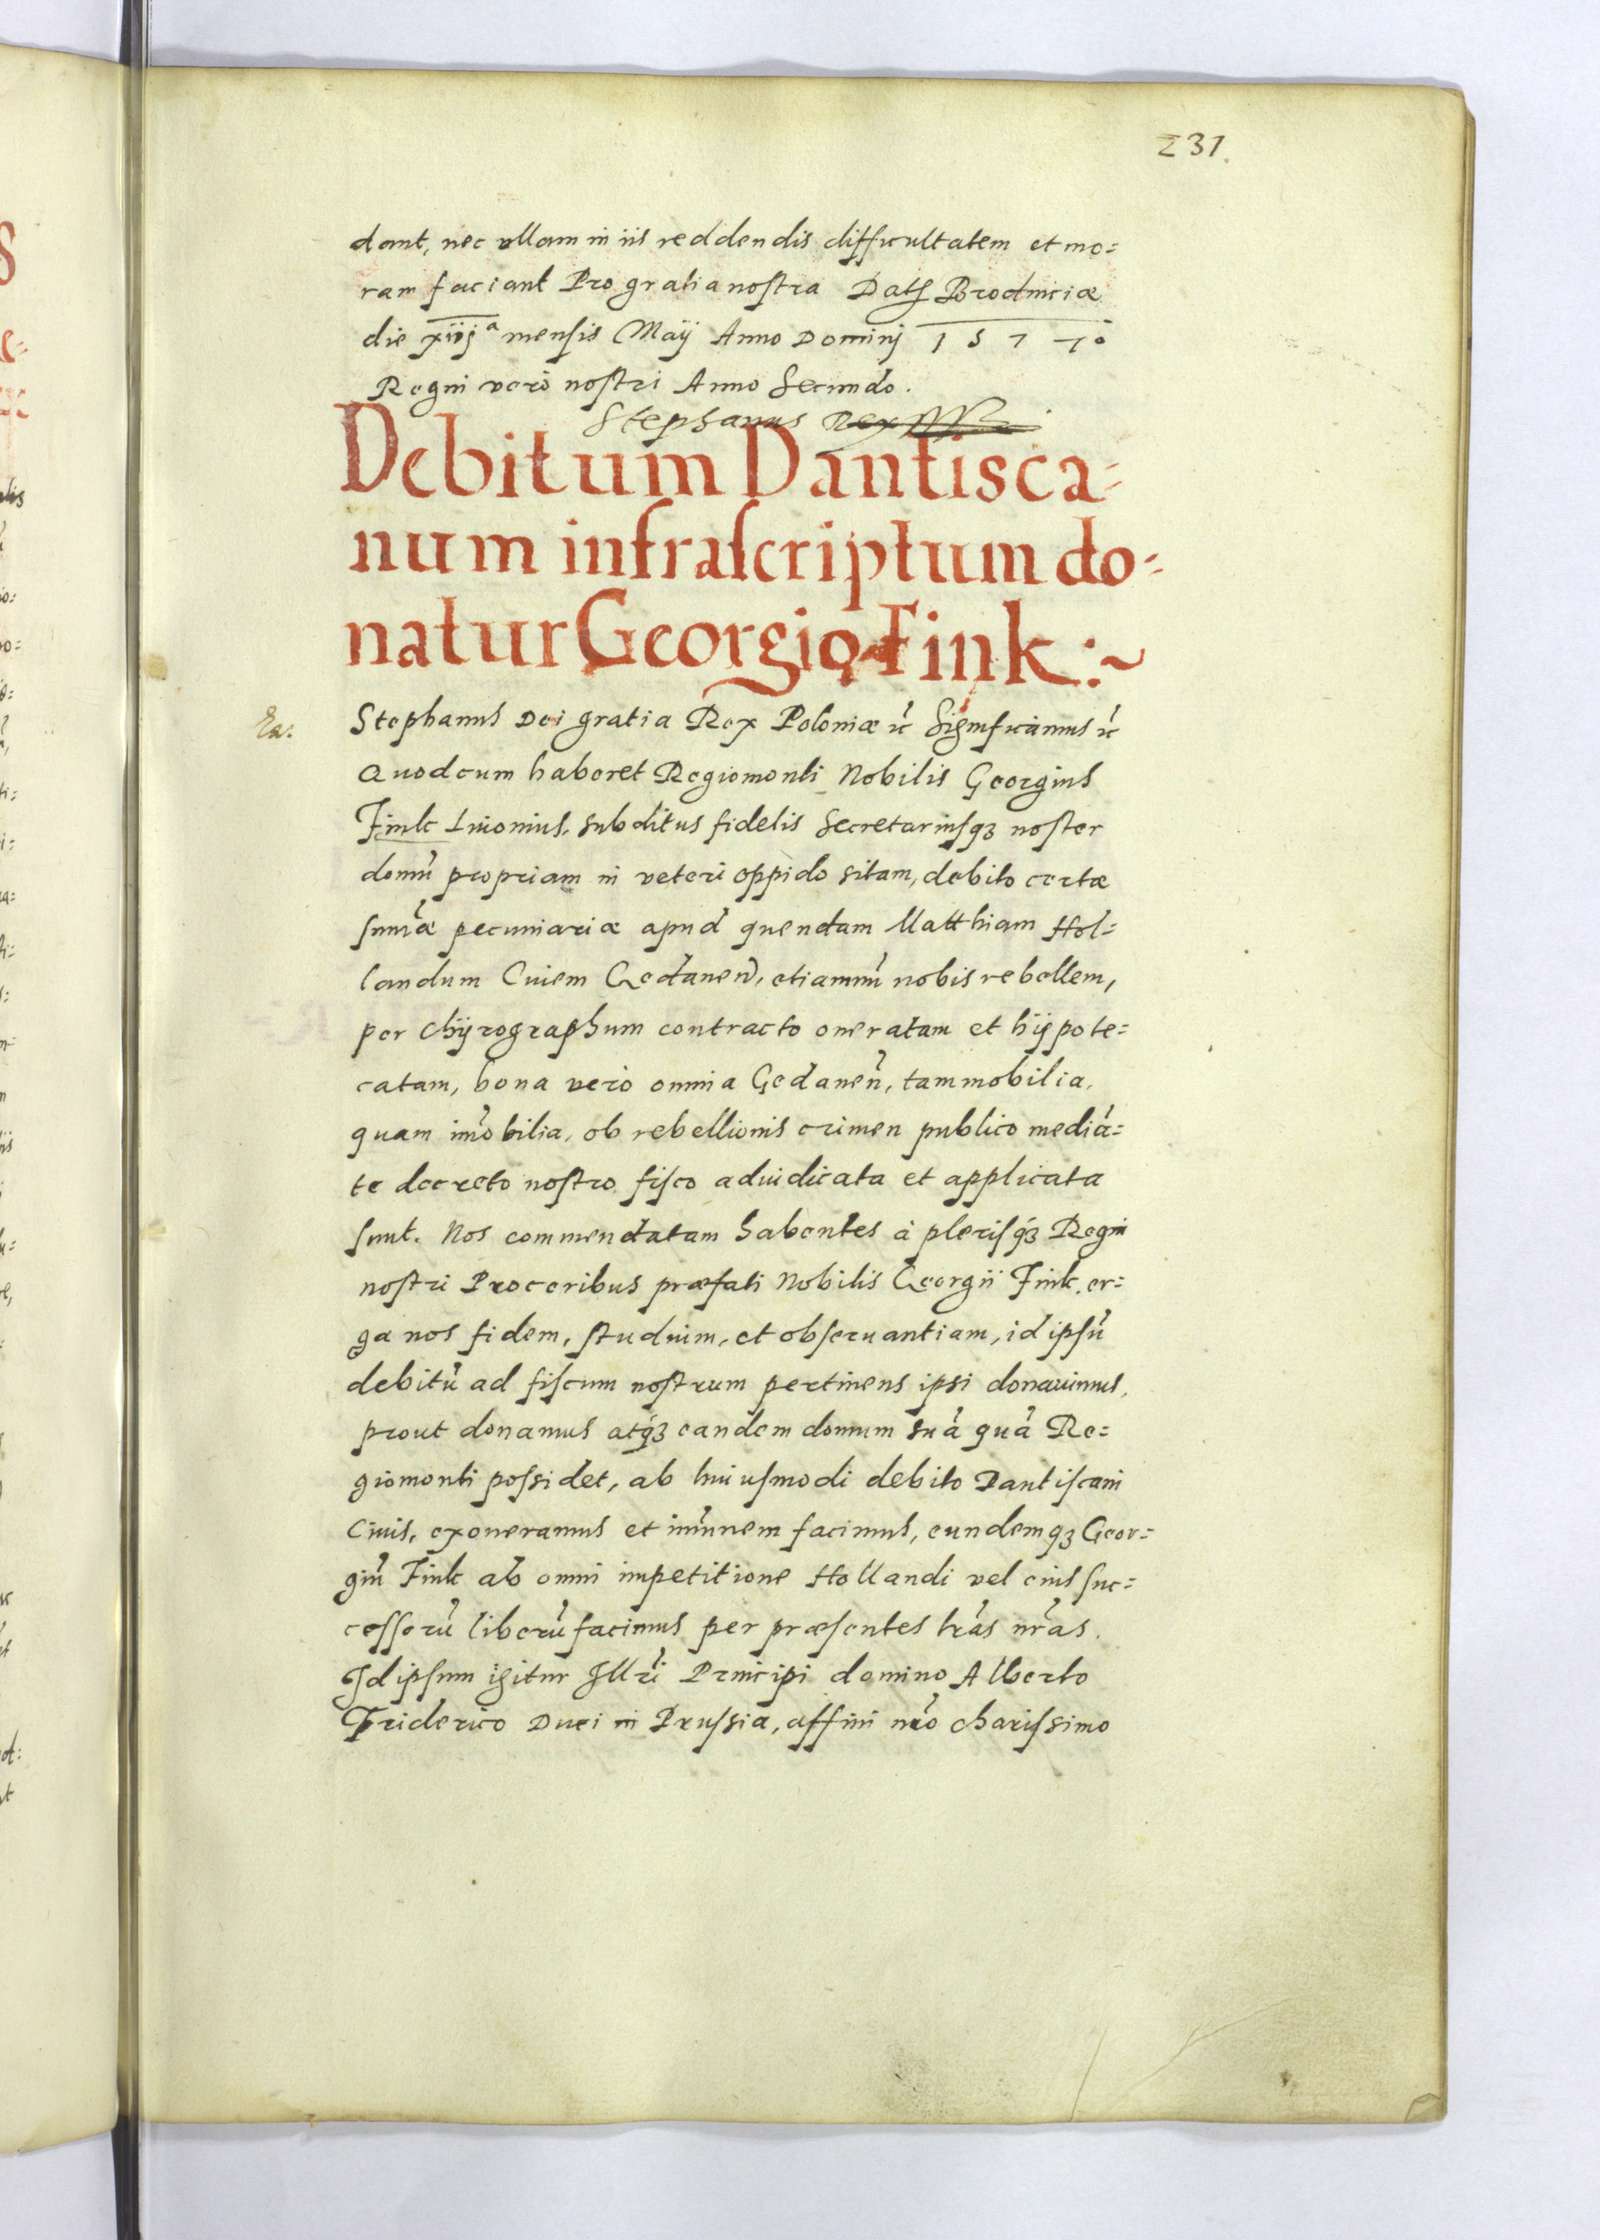 231.
dant, nec vllam in iis reddendis difficultatem et mo=
ram faciant Pro gratia nostra Dat Brodniciæ
die mensis Maÿ Anno Dominj 1577o
Regni verò nostri Anno Secundo.
Stephanus Rex
Debitum Dantisca=
num infrascriptum do=
natur Georgio Fink:~
Stephanus Dei gratia Rex Poloniæ ec̃ Significamus ec̃
Quod cum haberet Regiomonti Nobilis Georgius
Fink Liuonius, subditus fidelis Secretariusqȝ noster
domũ propriam in veteri oppido sitam, debito certæ
sum̃æ pecuniariæ apud quendam Matthiam Hol=
landum Ciuem Gedaneñ, etiamnũ nobis rebellem,
per chÿrographum contracto oneratam et hÿpote=
catam, bona verò omnia Gedaneñ, tam mobilia,
quam im̃obilia, ob rebellionis crimen publico mediã=
te decreto nostro fisco adiudicata et applicata
sunt. Nos commendatam habentes à plerisqȝ Regni
nostri Proceribus præfati Nobilis Georgii Fink, er=
ga nos fidem, studium, et obseruantiam, id ipsũ
debitũ ad fiscum nostrum pertinens ipsi donauimus,
prout donamus atqȝ eandem domum suã quã Re=
giomonti possidet, ab huiusmodi debito Dantiscani
Ciuis, exoneramus et im̃unem facimus, eundemqȝ Geor=
giũ Fink ab omni impetitione Hollandi vel eius suc=
cessorũ liberũ facimus per præsentes lr̃as nr̃as.
Id ipsum igitur Illr̃i Principi domino Alberto
Friderico Duci in Prussia, affini nr̃o charissimo